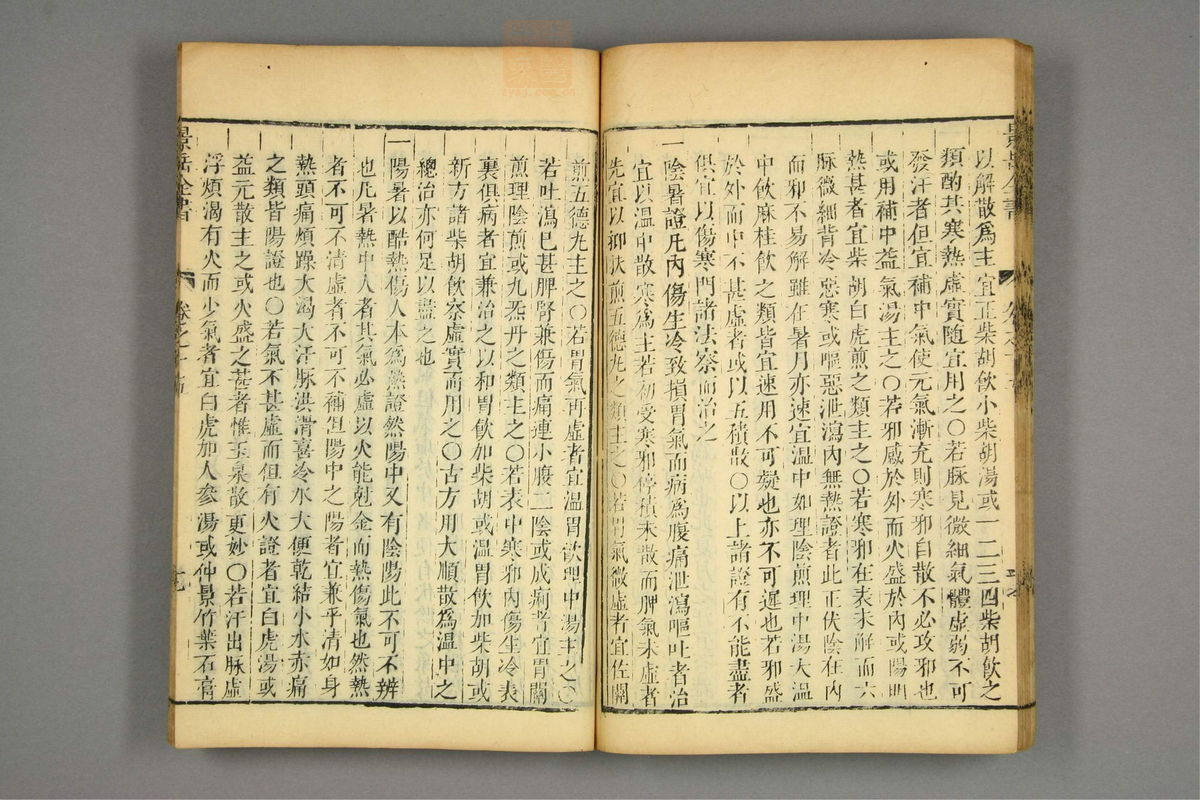 以解散爲主宜正柴胡飮小柴胡湯或一二三四柴胡飮之
類酌其寒熱虛實隨宜用之〇若脉見微細氣體虛弱不可
發汗者但宜補中氣使元氣漸充則寒邪自散不必攻邪也
或用補中益氣湯主之〇若邪感於外而火盛於內或陽明
熱甚者宜柴胡白虎煎之類主之〇若寒邪在表未解而六
脉微細背冷惡寒或嘔惡泄瀉內無熱證者此正伏陰在內
而邪不易解雖在暑月亦速宜溫中如理陰煎理中湯大溫
中飮麻桂飮之類皆宜速用不可疑也亦不可遲也若邪盛
於外而中不甚虛者或以五積散〇以上諸證有不能盡者
俱宜以傷寒門諸法察而治之
一陰暑證凡內傷生冷致損胃氣而病爲腹痛泄瀉嘔吐者治
宜以溫中散寒爲主若初受寒邪停積未散而脾氣未虛者
先宜以抑扶煎五德丸之類主之〇若胃氣微虛者宜佐關
煎五德丸主之〇若胃氣再虛者宜溫胃飮理中湯主之〇
若吐瀉已甚脾腎兼傷而痛連小腹二陰或成痢者宜胃關
煎理陰煎或九炁丹之類主之〇若表中寒邪內傷生冷表
裏俱病者宜兼治之以和胃飮加柴胡或溫胃飮加柴胡或
新方諸柴胡飮察虛實而用之〇古方用大順散爲溫中之
總治亦何足以盡之也
一陽暑以酷熱傷人本爲熱證然陽中又有陰陽此不可不辨
也凡暑熱中人者其氣必虛以火能尅金而熱傷氣也然熱
者不可不清虛者不可不補但陽中之陽者宜兼乎清如身
熱頭痛煩躁大渴大汗脉洪滑喜冷水大便乾結小水赤痛
之類皆陽證也〇若氣不甚虛而但有火證者宜白虎湯或
益元散主之或火盛之甚者惟玉泉散更妙〇若汗出脉虛
浮煩渴有火而少氣者宜白虎加人參湯或仲景竹葉石膏
景岳全書